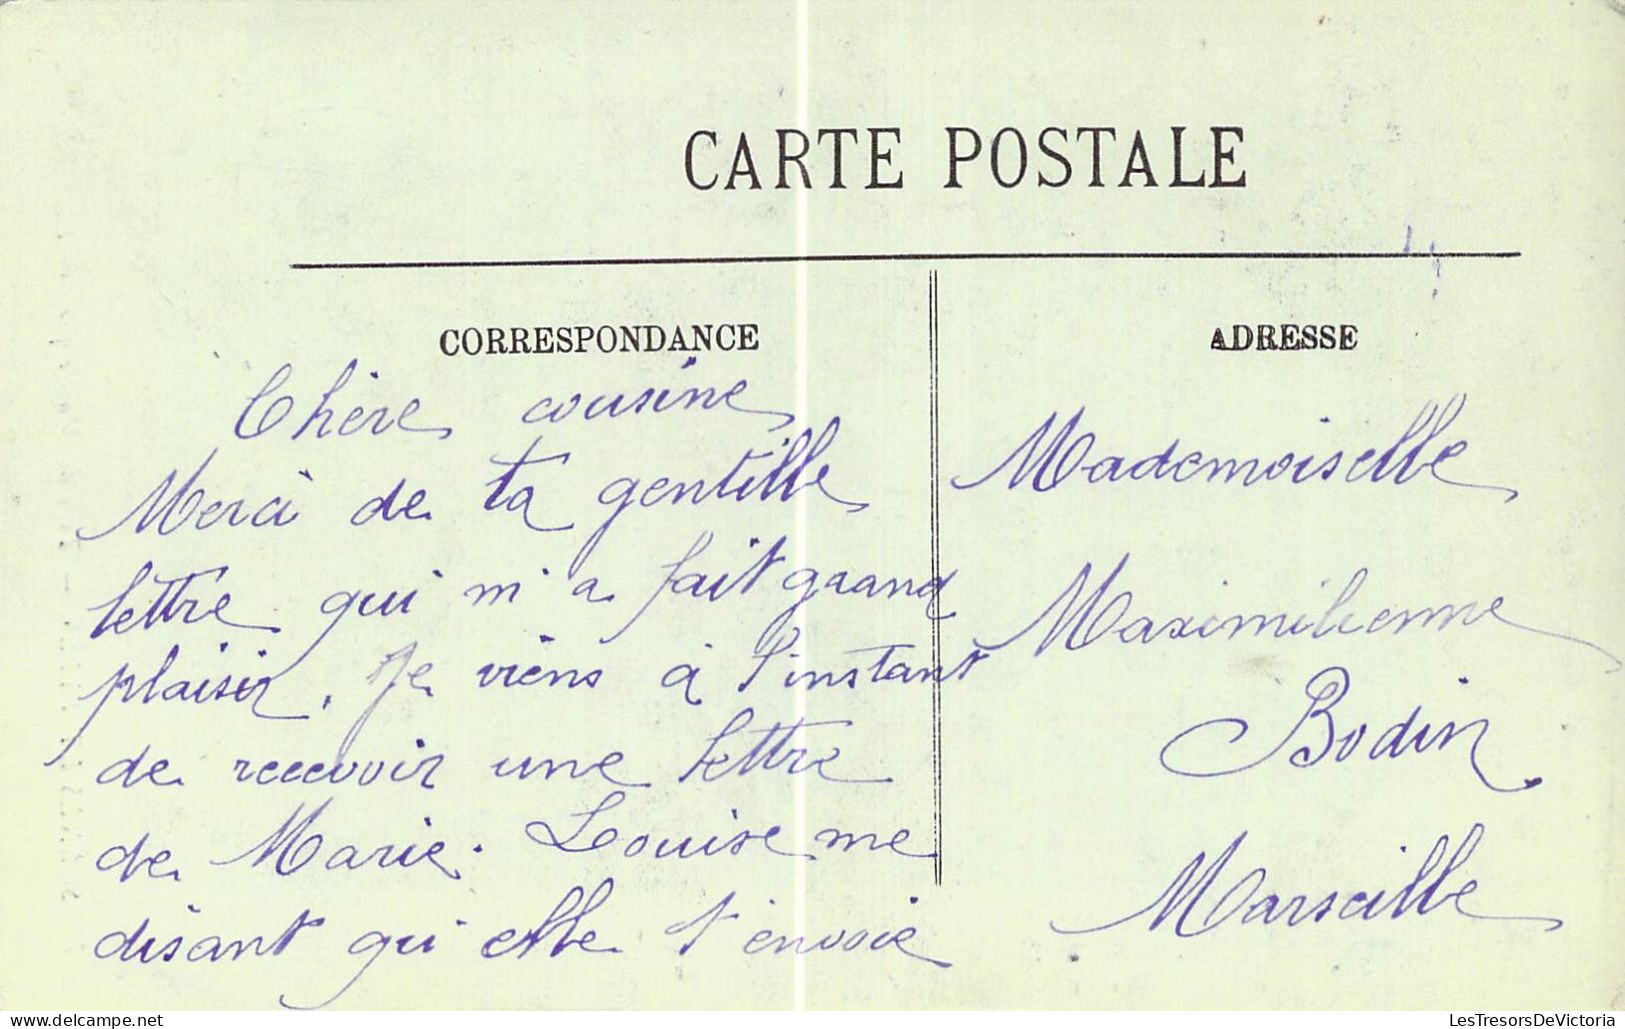 CARTE POSTALE
CORRESPONDANCE
Chère cousine
Merci de ta gentille
lettre qui m'a fait grand
plaisir. Je viens à l'instant
de recevoir une lettre
de Marie. Louise me
disant qui elle t'envoie
ADRESSE
Mademoiselle
Maximilienne
Bodin
Marseille
LesTresorsDeVictoria
www.delcampe.net